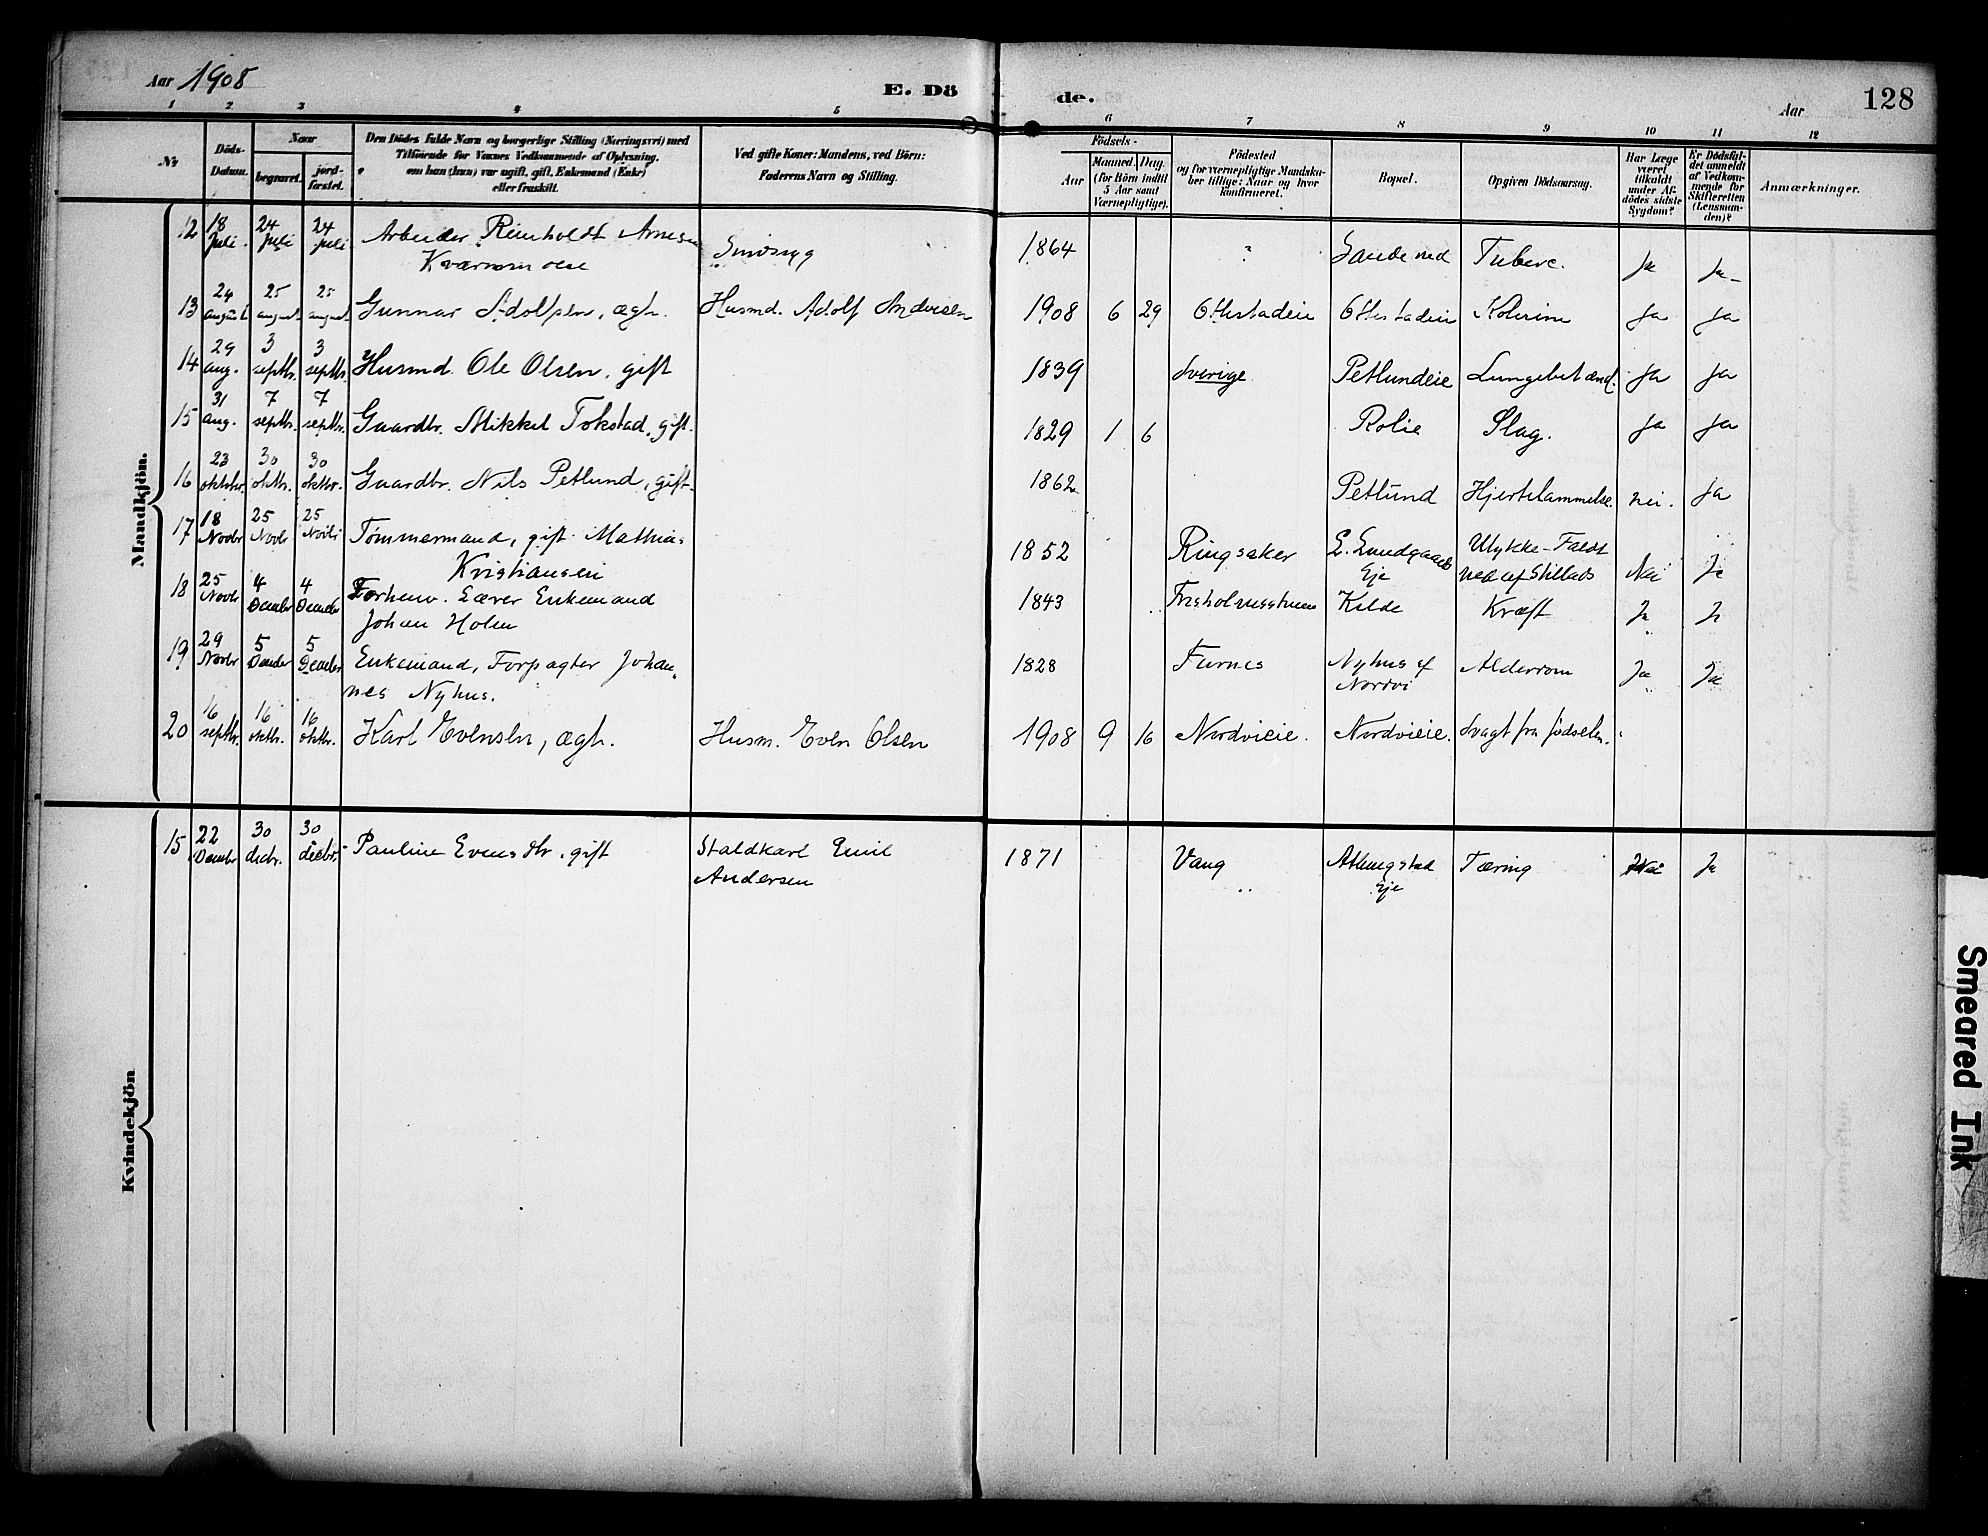 Aar 1908
E. Dö
de.
Aar
128
1 2 3 4 5 6 7 8 9 10 11 12
No
Döds-
Datum.
Naar
begravet.
jord-
fæstet.
Den Dödes fulde Navn og borgerlige Stilling (Næringsvei) med
Tilföiende for Voxnes Vedkommende af Oplysning,
om han (hun) var ugift, gift, Enkemand (Enke)
eller fraskilt.
Ved gifte Koner: Mandens, ved Börn:
Faderens Navn og Stilling.
Födsels-
Aar
Maaned. Dag.
(for Börn indtil
5 Aar samt
Værnepligtige).
Födested
og for værnepligtige Mandska-
ber tillige: Naar og hvor
konfirmeret.
Bopæl.
Opgiven Dödsaarsag.
Har Læge
været
tilkaldt
under Af-
dödes sidste
Sygdom?
Er Dödsfal-
det anmeldt
af Vedkom-
mende for
Skifteretten
(Lensman-
den)?
Anmærkninger.
Mandkjön.
12 18 Juli. 24 Juli 24 Juli Arbeider Reinholdt Arnesen Sindssyg 1864 Sandened Tuberc. Ja Ja
Kværnmoen
13 24 august 25 august 25 august Gunnar Adolfsen, ægt. Husmd. Adolf Andersen 1908 6 29 Ottestadeie Ottestadeie Kolerine Ja Ja
14 29 aug. 3 septbr. 3 septbr. Husmd. Ole Olsen, gift 1839 Sverige Petlundeie Lungebetænd. Ja Ja
15 31 aug. 7 septbr. 7 septbr. Gaardbr. Mikkel Tokstad, gift. 1829 1 6 Rolie Slag. Ja Ja
16 23 oktbr. 30 oktbr. 30 oktbr. Gaardbr. Nils Petlund, gift. 1862 Petlund Hjertelammelse. nei. Ja
17 18 Novbr 25 Novbr 25 Novbr Tømmermand, gift Mathias 1852 Ringsaker L. Lundgaards Ulykke - Faldt Nei Ja
Kristiansen Eje ned af Stillads
18 25 Novbr 4 Decmbr 4 Decmbr Forhenv. Lærer Enkemand 1843 Kilde Kræft Ja Ja
Johan Holen
19 29 Novbr 5 Decmbr 5 Decmbr Enkemand, Forpagter Johan- 1828 Furnes Nyhus af Alderdom Ja Ja
nes Nyhus. Nordvi
20 16 septbr. 16 oktbr. 16 oktbr. Karl Evensen, ægt. Husm. Even Olsen 1908 9 16 Nordvieie. Nordvieie. Svagt fra fødselen.
Kvindekjön
15 22 Decmbr 30 decbr. 30 decbr. Pauline Evensdtr. gift Staldkarl Emil 1871 Vang Tæring Nei Ja
Andersen Eje
Smeared Ink